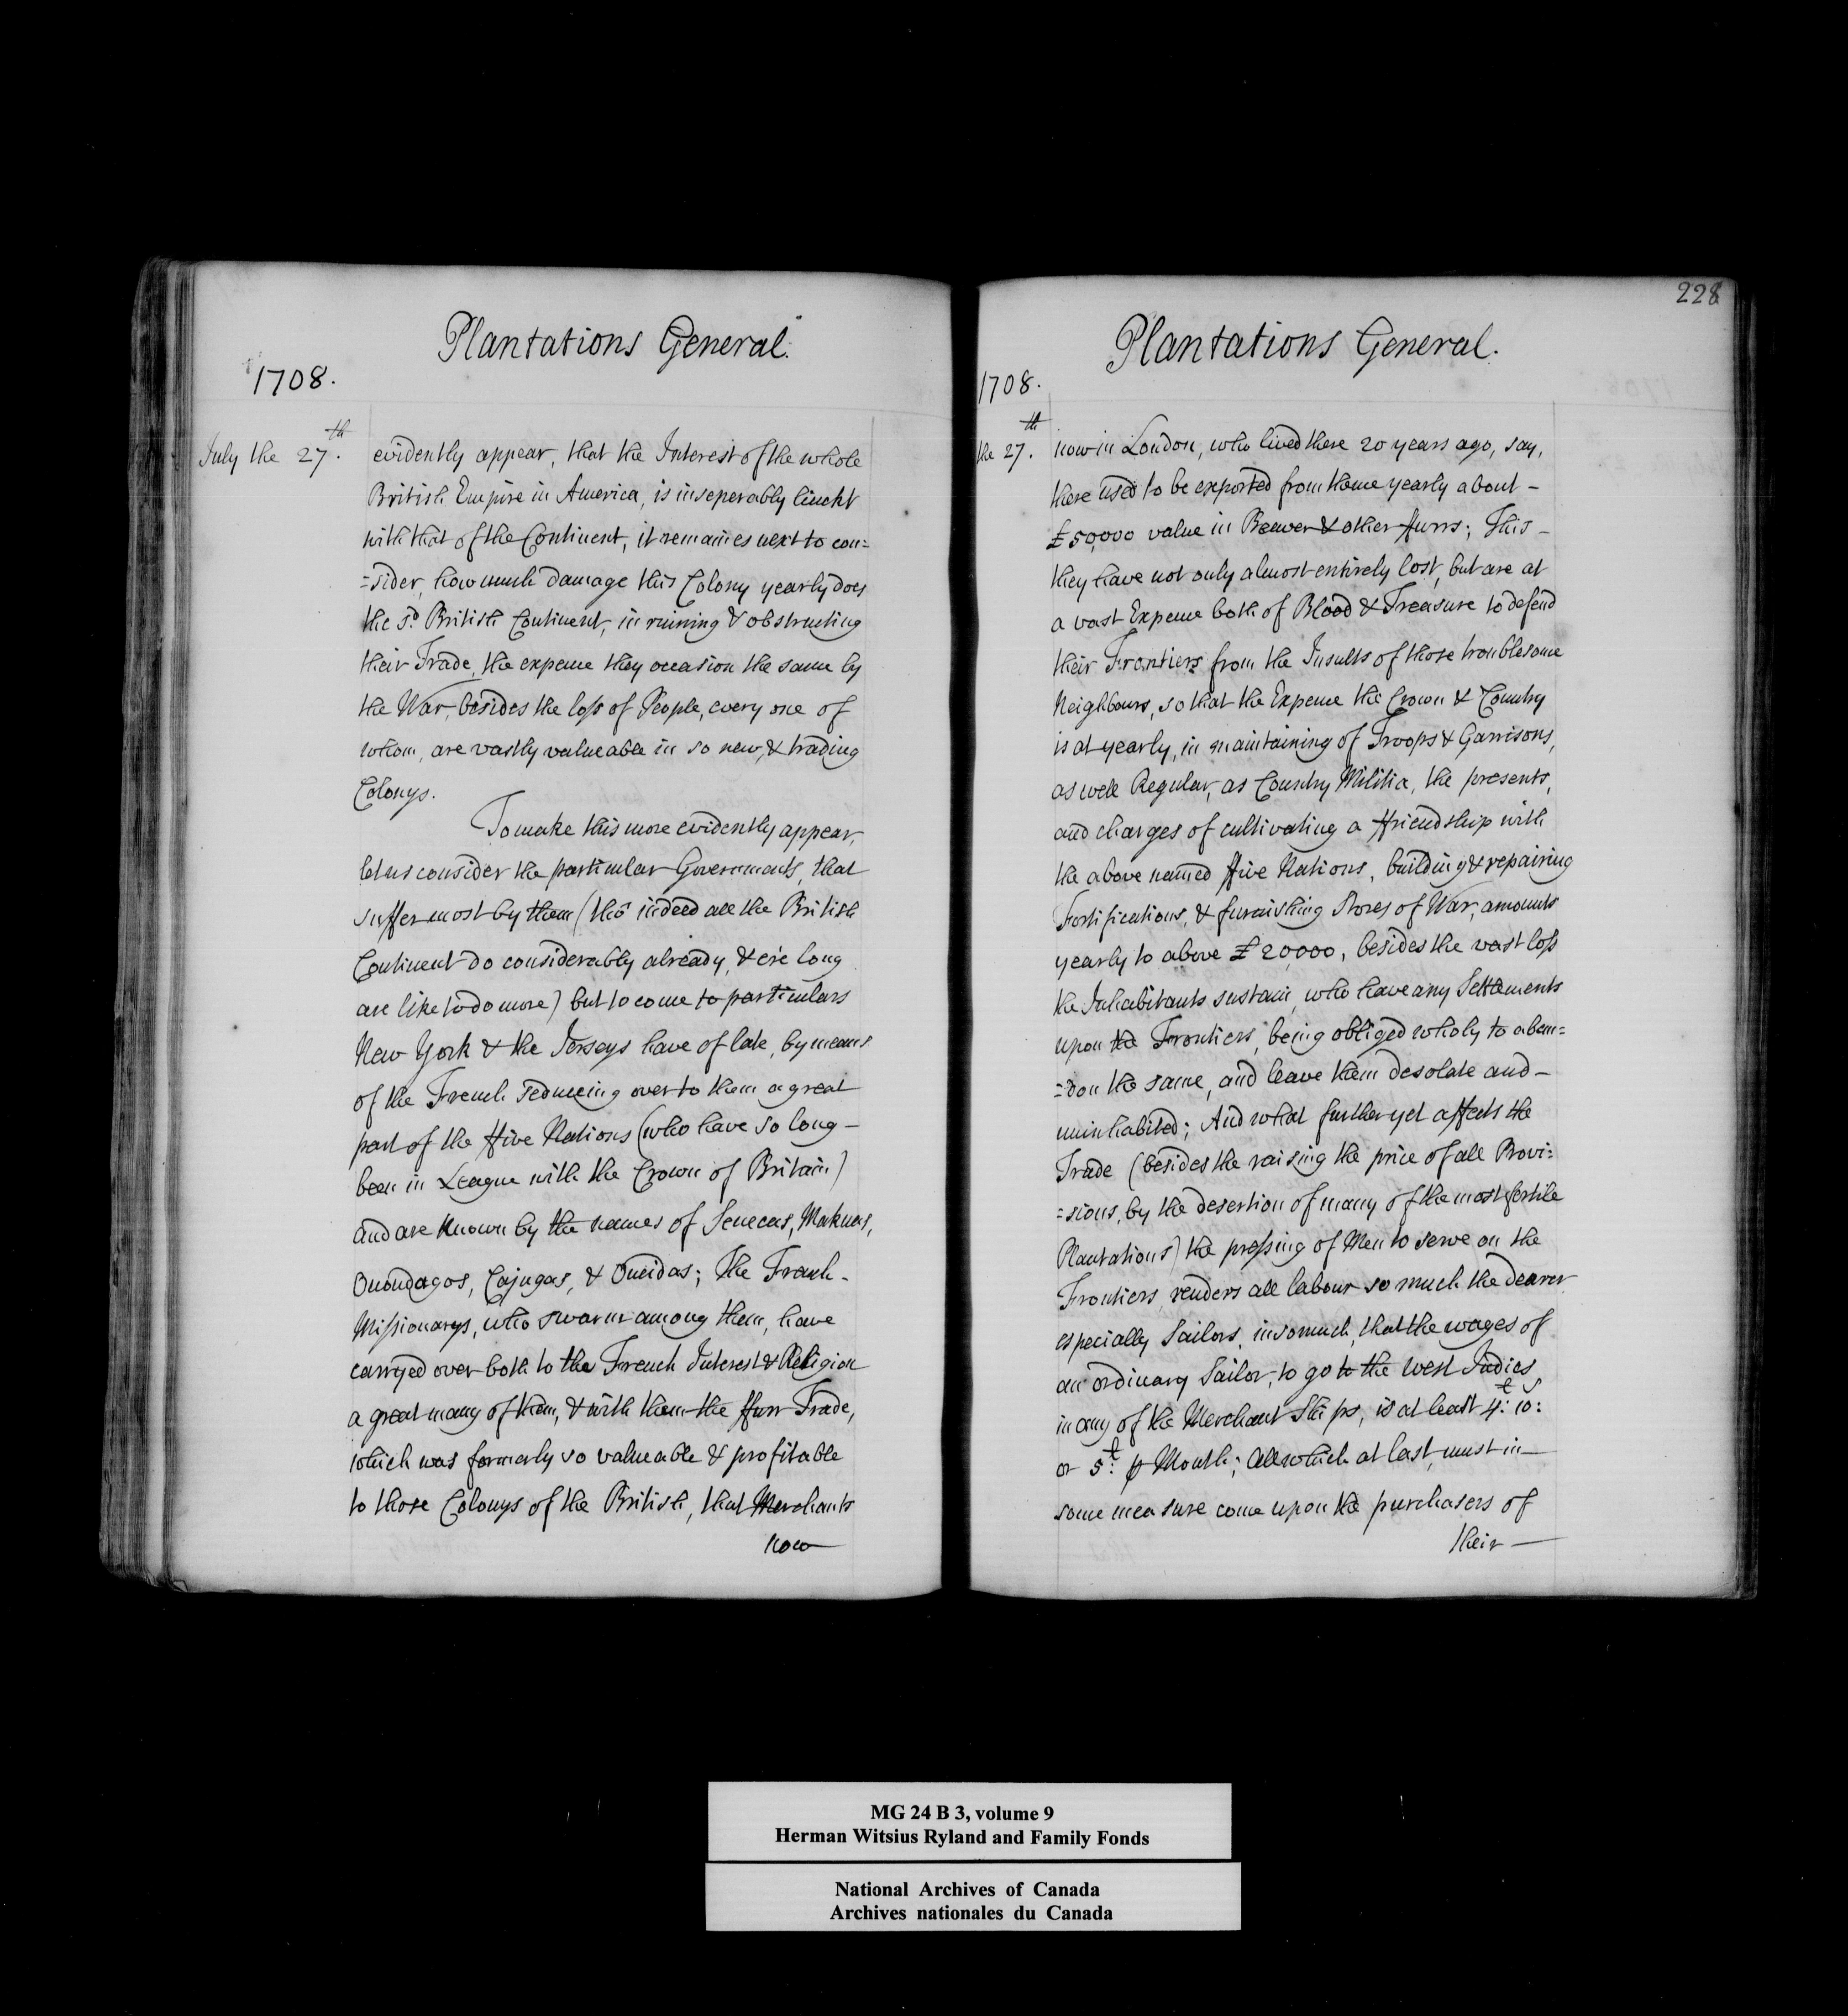 Plantations General.
1708.
July the 27.th
evidently appear, that the Interest of the whole
British Empire in America, is inseperably linckt
with that of the Continent, it remaines next to con=
=sider, how much damage this Colony yearly does
the s.d British Continent, in ruining & obstructing
their Trade, the expence they occasion the same by
the War, besides the loss of People, every one of
whom, are vastly valueable in so new, & trading
Colonys.
To make this more evidently appear,
let us consider the particular Governments, that
suffer most by them (tho' indeed all the British
Continent do considerably already, & e're long
are like to do more) but to come to particulars
New York & the Jerseys have of late, by means
of the French seducing over to them a great
part of the ffive Nations (who have so long –
been in League with the Crown of Britain)
and are known by the names of Senecas, Makuas,
Onondagos, Cajugas, & Oneidas; The French –
Missionarys, who swarm among them, have
carryed over both to the French Interest & Religion
a great many of them, & with them the ffurr Trade,
which was formerly so valueable & profitable
to those Colonys of the British, that Merchants
now
228
Plantations General.
1708.
the 27.th
now in London, who lived there 20 years ago, say,
there used to be exported from thence yearly about –
£50,000 value in Beaver & other ffurrs; This –
they have not only almost entirely lost, but are at
a vast Expence both of Blood & Treasure to defend
their Frontiers from the Insults of those troublesome
Neighbours, so that the Expence the Crown & Country
is at yearly, in maintaining of Troops & Garrisons,
as well Regular, as Country Militia, the presents,
and charges of cultivating a ffriendship with
the above named ffive Nations, building & repairing
Fortifications, & furnishing Stores of War, amounts
yearly to above £20,000, besides the vast loss
the Inhabitants sustain, who have any Settlements
upon the Frontiers, being obliged wholy to aban=
=don the same, and leave them desolate and –
uninhabited; And what further yet affects the
Trade (besides the raising the price of all Provi=
=sions, by the desertion of many of the most fertile
Plantations) the pressing of Men to serve on the
Frontiers, renders all labour so much the dearer
especially Sailors, insomuch, that the wages of
an ordinary Sailor, to go to the West Indies
in any of the Merchant Ships, is at least 4£: 10s:
or 5£: ⅌ Month; All which at last, must in –
some measure come upon the purchasers of
their –
MG 24 B 3, volume 9
Herman Witsius Ryland and Family Fonds
National Archives of Canada
Archives nationales du Canada